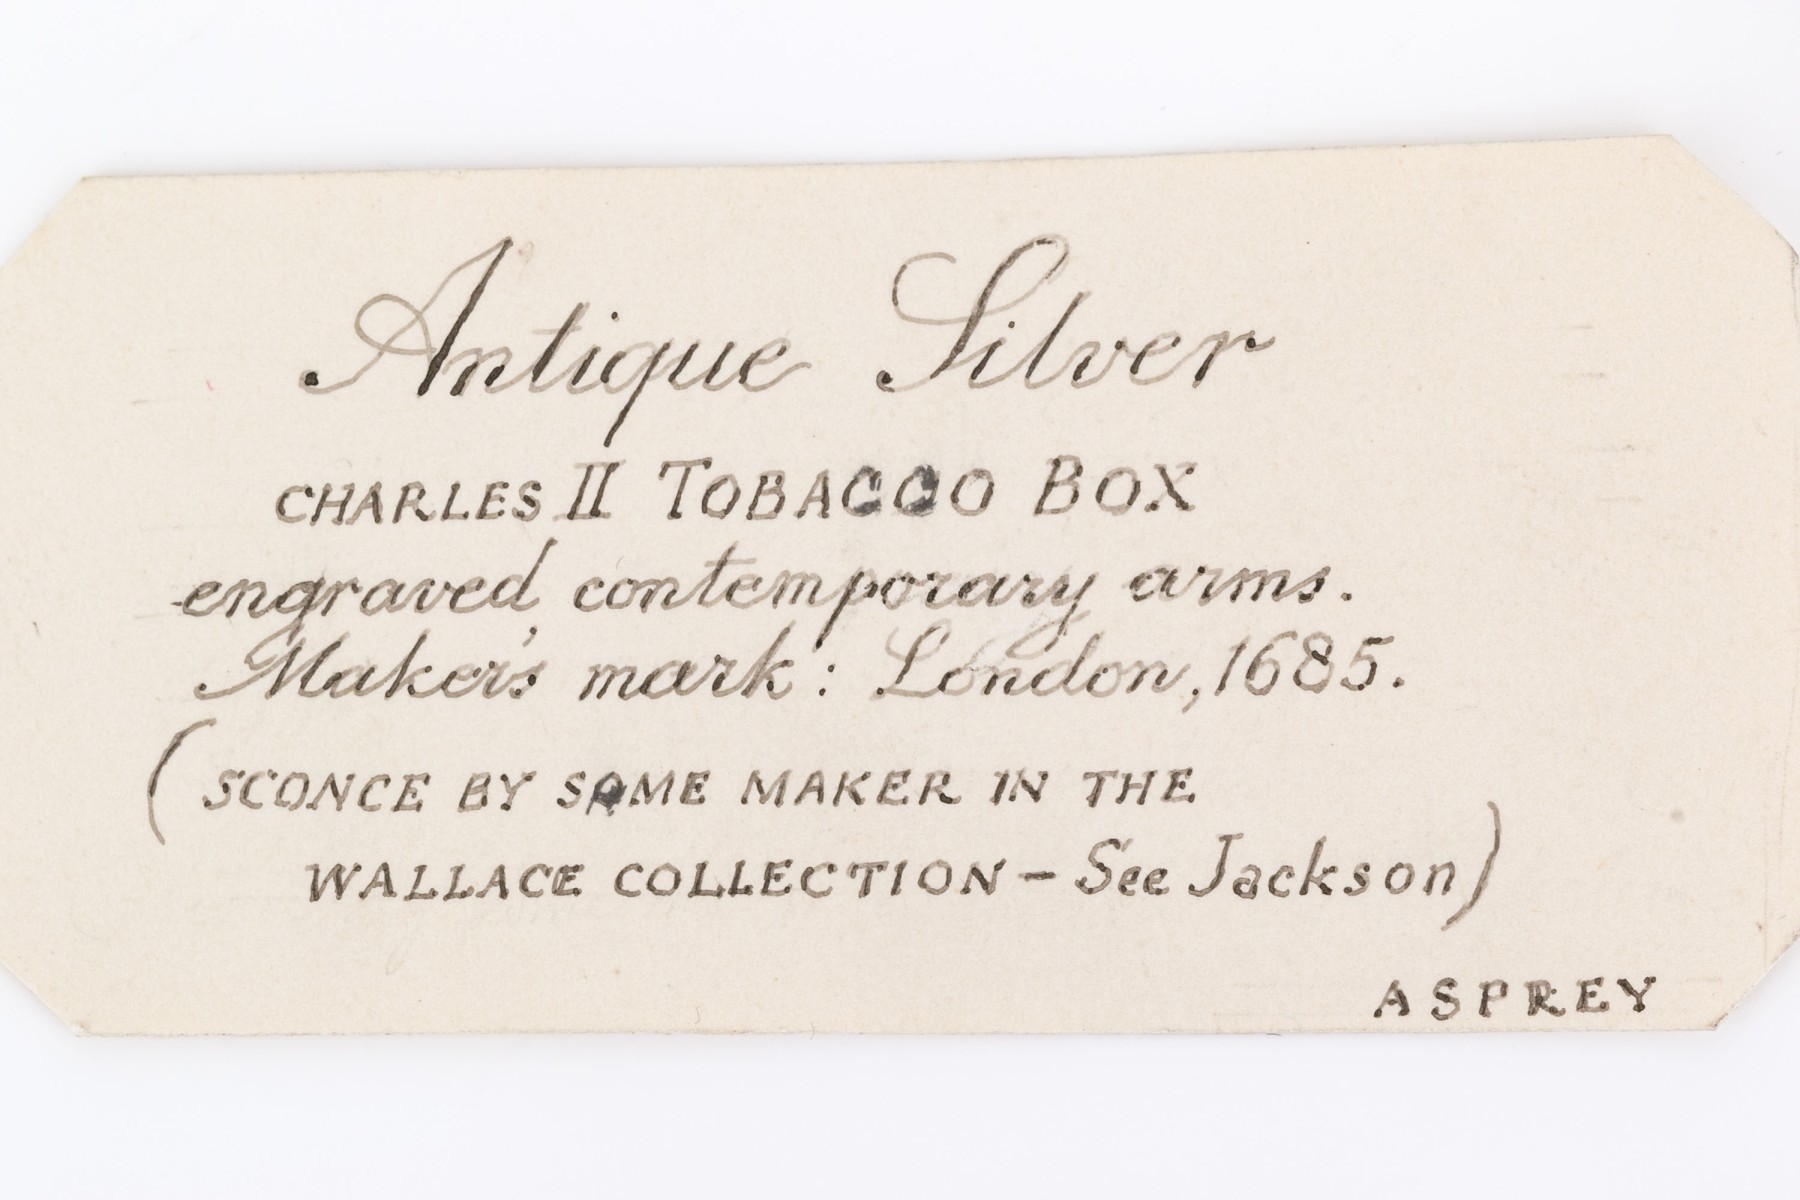 Antique Silver
CHARLES II TOBACCO BOX
engraved contemporary arms.
Maker's mark: London, 1685.
(SCONCE BY SAME MAKER IN THE
WALLACE COLLECTION - See Jackson)
ASPREY